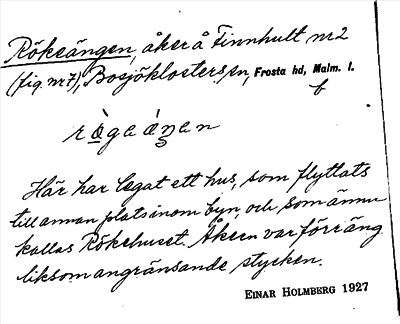 Rökeängen, åker å Finnhult nr 2
(fig. nr 7), Bosjöklosters sn, Frosta hd, Malm. l.
Här har legat ett hus, som flyttats
till annan plats inom byn, och som ännu
kallas Rökehuset. Åkern var förr äng
liksom angränsande stycken.
EINAR HOLMBERG 1927